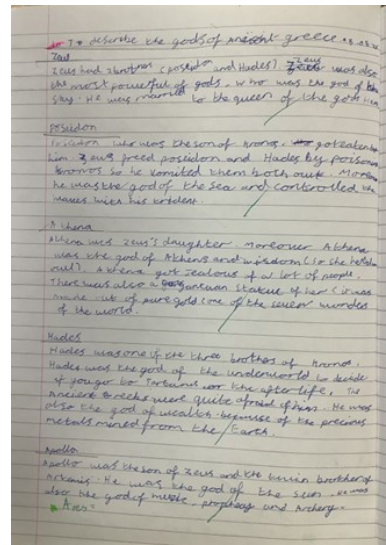 to describe the gods of Ancient greece.
Zeus
Zeus had 2 brothers (poseidon and Hades). Zeus was also
the most powerful of gods, who was the god of the
sky. He was married to the queen of the gods
Poseidon
Poseidon who was the son of Kronos. got eaten by
him. Zeus freed poseidon and Hades by poison
Kronos so he vomited them both out.
he was the god of the sea and controlled the
waves with his trident.
Athena
Athena was Zeus's daughter. Moreover Athena
was the god of Athens and wisdom (so she
owl). Athena got Jealous of a lot of people.
There was also a statue of her (it was
made out of pure gold (one of the seven wondes
of the world.
Hades
Hades was one of the three brothers of Kronos.
Hades was the god of the underworld to decide
if you go to or the afterlife. The
Ancient Greeks were quite afraid of him. He was
also the god of wealth because of the precious
metals mined from the Earth.
Apollo
Apollo was the son of Zeus and the brother of
Artemis. He was the god of the sun. He was
also the god of music, prophecy and Archery.
Ares